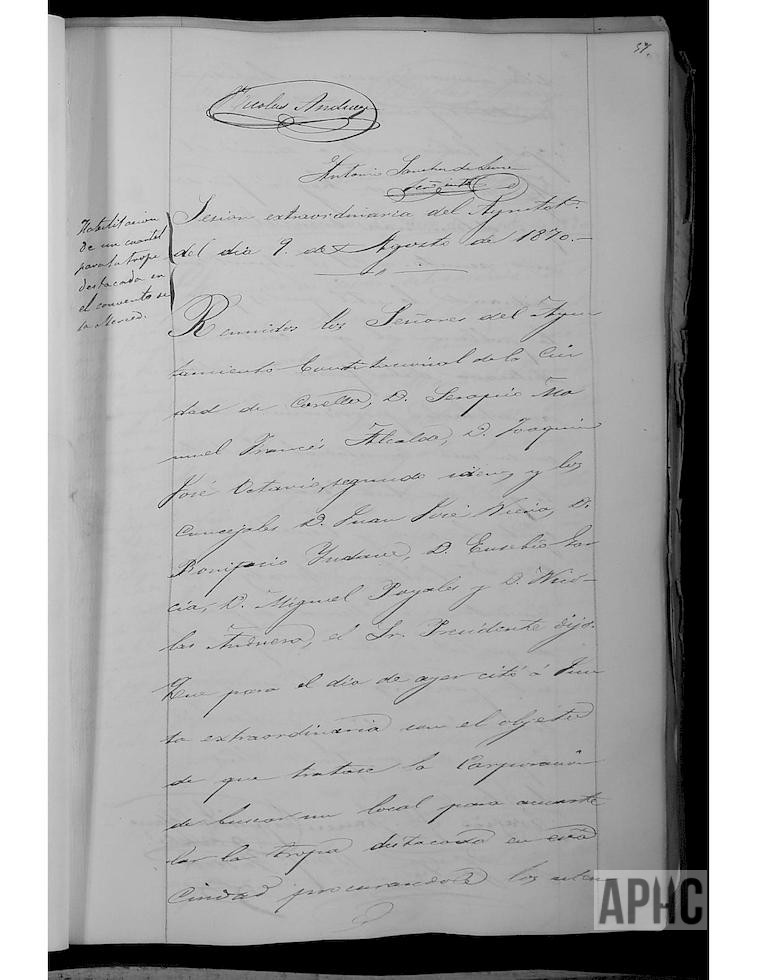 57.
Nicolas Andueza
Antonio Sanchez de Luna
Secret.º
Habilitacion
de un cuartel
para la tropa
destacada en
el convento de
la Merced.
Sesion extraordinaria del Ayntot.º
del dia 9. de Agosto de 1870.—
Reunidos los Señores del Ayun
tamiento Constitucional de la Ciu
dad de Corella, D. Serapio Ma
nuel Francés Alcalde, D. Joaquin
José Octavio, segundo idem, y los
Concejales D. Juan José D.
Bonifacio D. Eusebio Gar
cía, D. Miguel Poyales y D. Nico-
las Andueza, el Sr. Presidente dijo:
Que para el dia de ayer citó á Jun
ta extraordinaria con el objeto
de que tratase la Corporacion
de buscar un local para acuarte
lar la tropa destacada en esta
Ciudad procurandole los uten
APHC